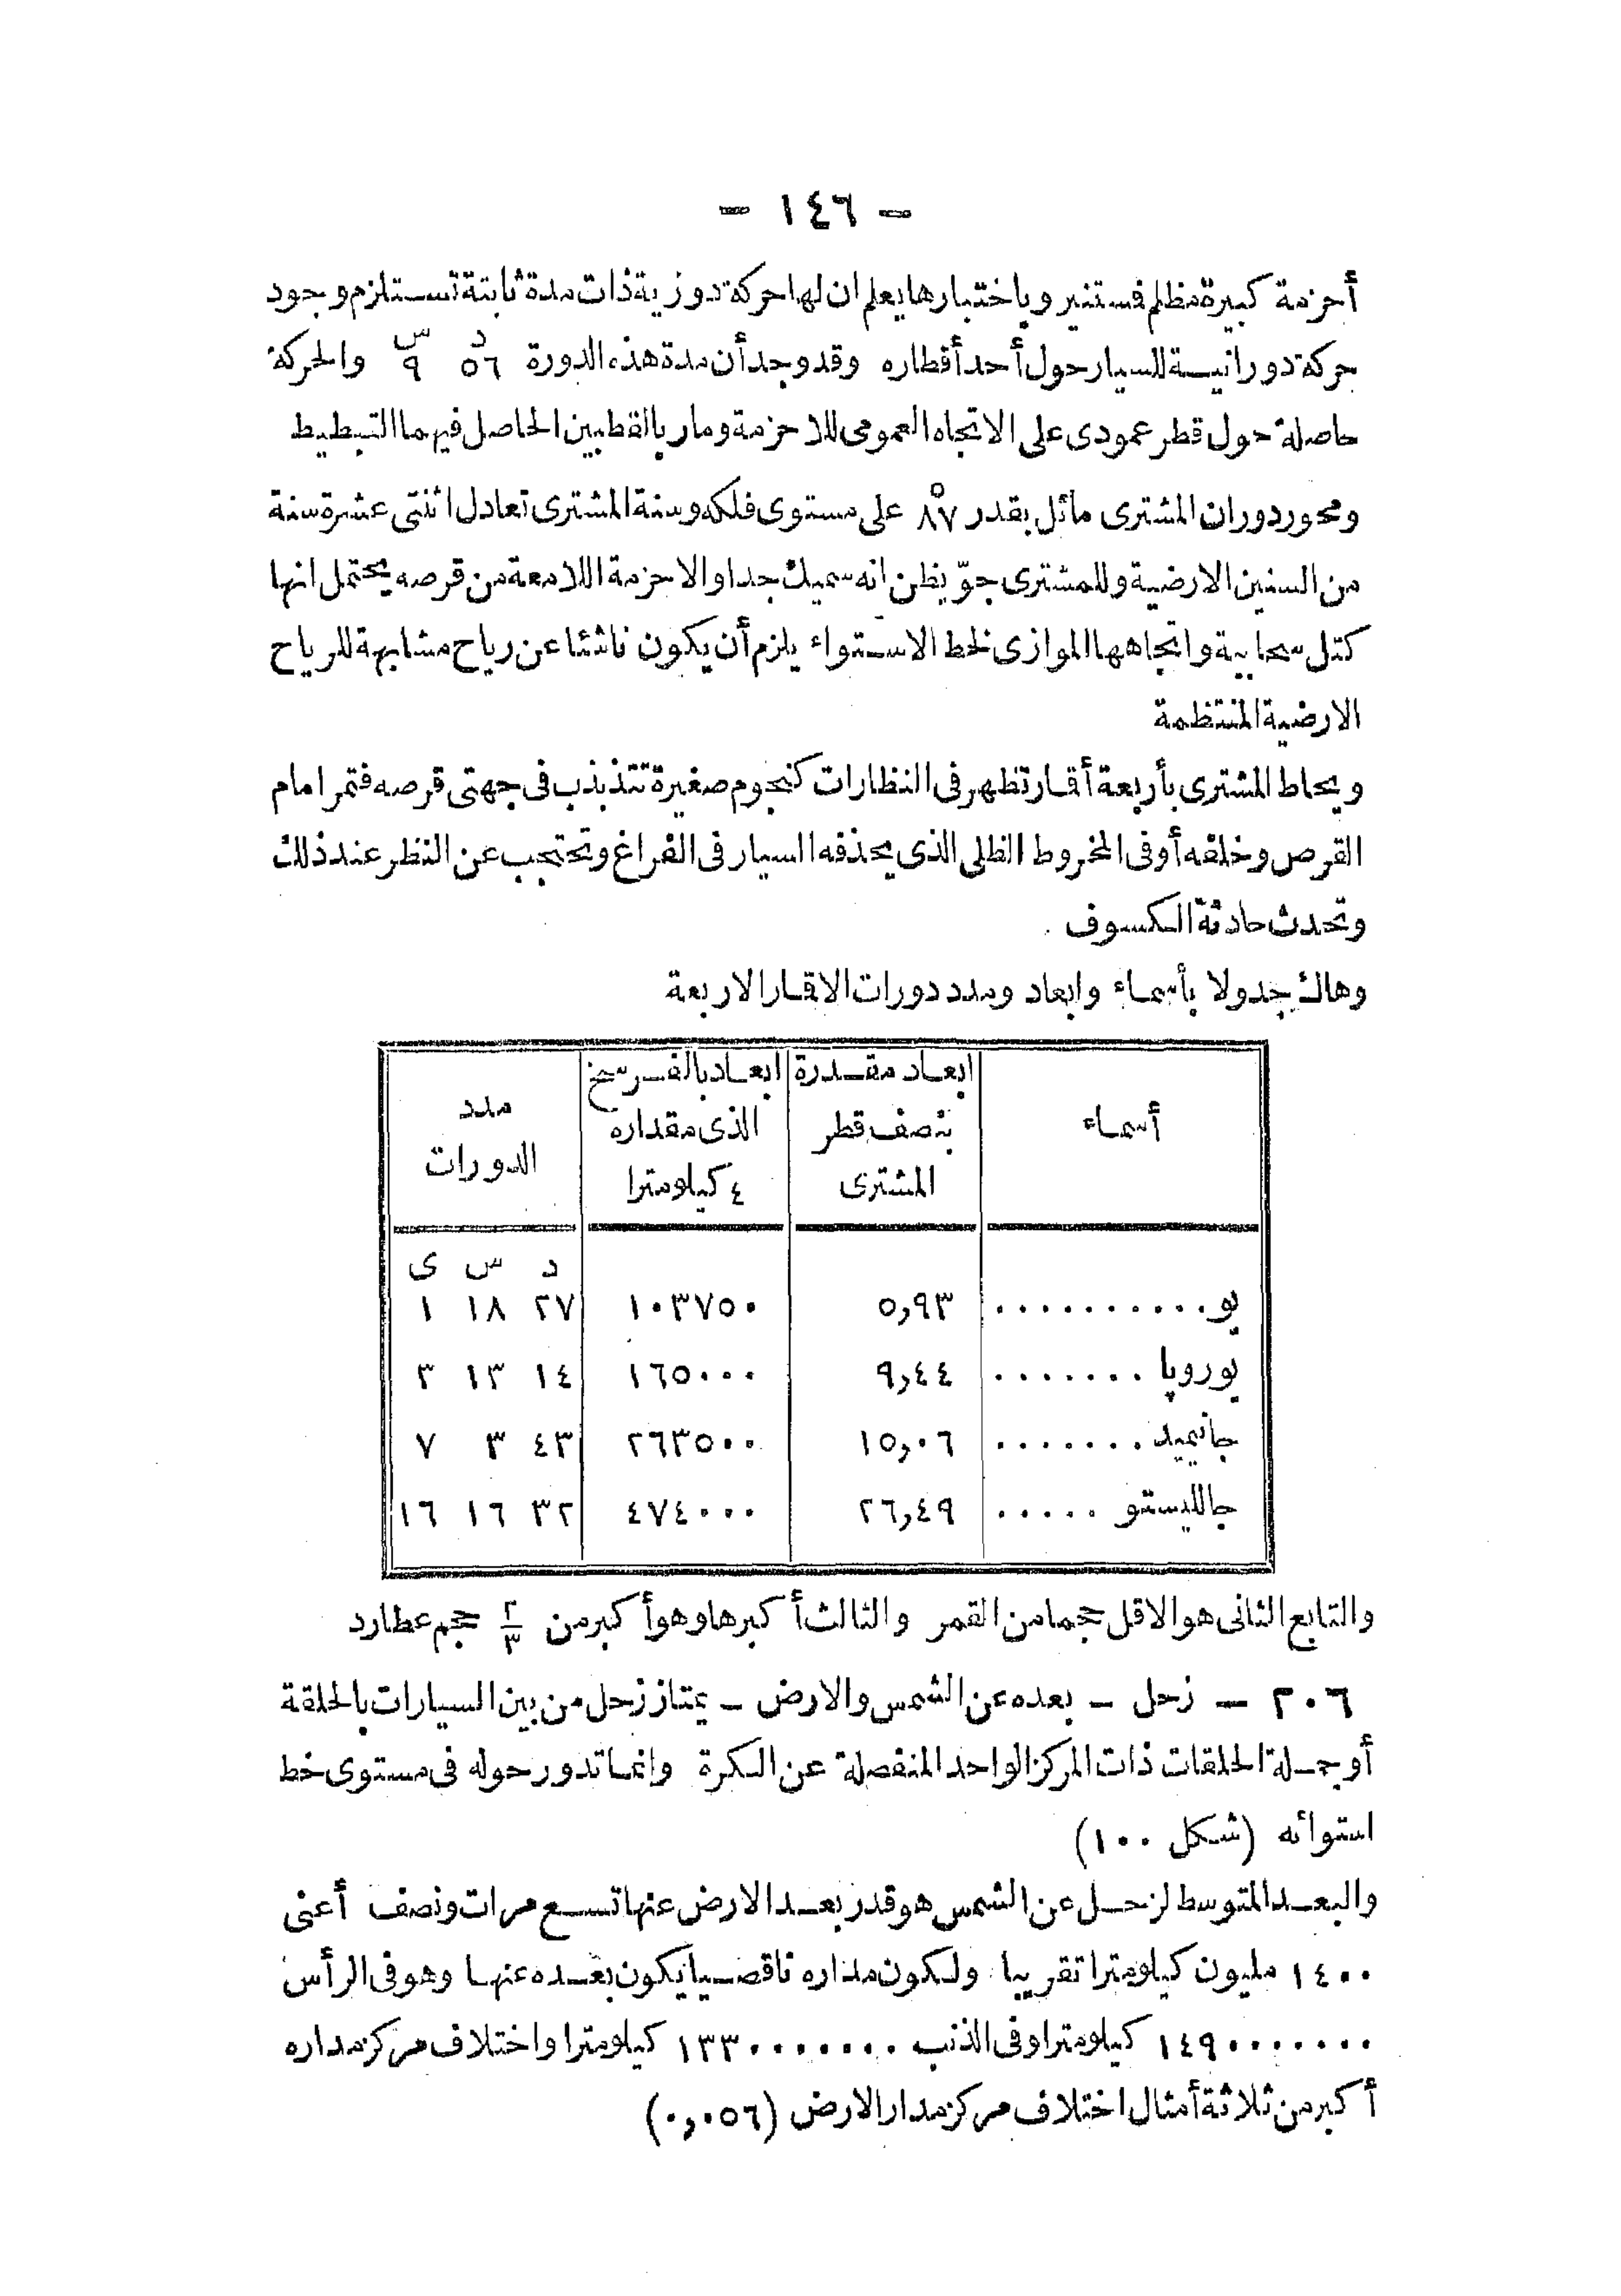 - ١٤٦ -
أحزمة كبيرة مظلم فستنير وباختبارها يعلم ان لها حركة دورية ذات مدة ثابتة تستلزم وجود
حركة دورانية للسيار حول أحد أقطاره وقد وجد أن مدة هذه الدورة ٥٦د ٩س والحركة
حاصلة حول قطر عمودى على الاتجاه العمومى للاحزمة ومار بالقطبين الحاصل فيهما التبطيط
ومحور دوران المشترى مائل بقدر ٨٧° على مستوى فلكه وسنة المشترى تعادل اثنتى عشرة سنة
من السنين الارضية وللمشترى جوّ يظن انه سميك جدا والاحزمة اللامعة من قرصه يحتمل انها
كتل سحابية واتجاهها الموازى لخط الاستواء يلزم أن يكون ناشئا عن رياح مشابهة للرياح
الارضية المنتظمة
ويحاط المشترى بأربعة أقمار تظهر فى النظارات كنجوم صغيرة تتذبذب فى جهتى قرصه فتمر امام
القرص وخلفه أو فى المخروط الظلى الذى يحذفه السيار فى الفراغ وتحتجب عن النظر عند ذلك
وتحدث حادثة الكسوف
وهاك جدولا بأسماء وابعاد ومدد دورات الاقمار الاربعة
أسماء ابعاد مقدرة بنصف قطر المشترى ابعاد بالفرسخ الذى مقداره ٤ كيلومترا مدد الدورات
د س ى
يو .......... ٥,٩٣ ١٠٣٧٥٠ ٢٧ ١٨ ١
يوروپا ....... ٩,٤٤ ١٦٥٠٠٠ ١٤ ١٣ ٣
جانيميد ....... ١٥,٠٦ ٢٦٣٥٠٠ ٤٣ ٣ ٧
جالليستو ..... ٢٦,٤٩ ٤٧٤٠٠٠ ٣٢ ١٦ ١٦
والتابع الثانى هو الاقل حجما من القمر والثالث أكبرها وهو أكبر من ٢/٣ حجم عطارد
٢٠٦ - زحل - بعده عن الشمس والارض - يمتاز زحل من بين السيارات بالحلقة
أو جملة الحلقات ذات المركز الواحد المنفصلة عن الكرة وانما تدور حوله فى مستوى خط
استوائه (شكل ١٠٠)
والبعد المتوسط لزحل عن الشمس هو قدر بعد الارض عنها تسع مرات ونصف أعنى
١٤٠٠ مليون كيلومترا تقريبا ولكون مداره ناقصيا يكون بعده عنها وهو فى الرأس
١٤٩٠٠٠٠٠٠٠ كيلومترا وفى الذنب ١٣٣٠٠٠٠٠٠٠ كيلومترا واختلاف مركز مداره
أكبر من ثلاثة أمثال اختلاف مركز مدار الارض (٠,٠٥٦)